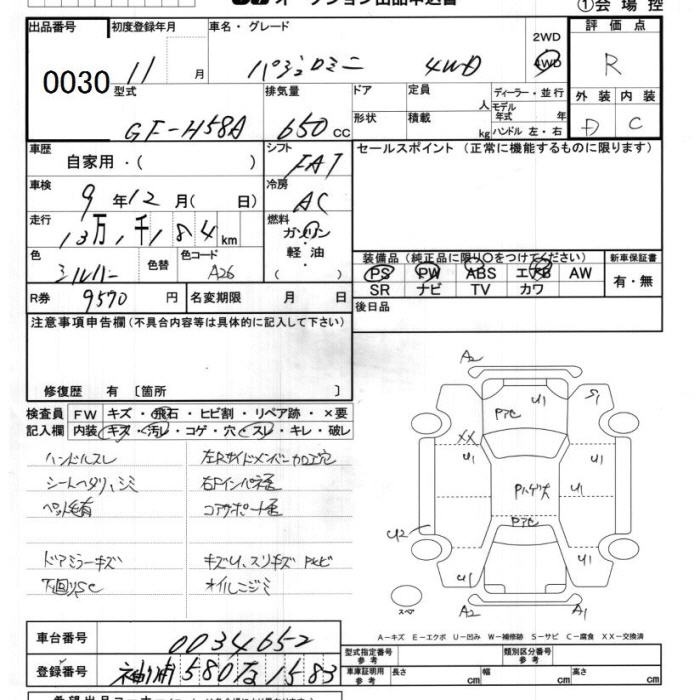 オークション出品申込書 ①会場控
出品番号 0030
初度登録年月 11 月
車名・グレード パジェロミニ 4WD
2WD 4WD
評価点 R
外装 D 内装 C
型式 GF-H58A
排気量 650 CC
ドア 形状
定員 人 積載 kg
ディーラー・並行
モデル年式 年
ハンドル 左・右
車歴 自家用・( )
シフト FAT
セールスポイント(正常に機能するものに限ります)
車検 9年12月( 日)
冷房 AC
走行 13万,千1 8 4 km
燃料 ガソリン・軽油・( )
色 シルバー 色替 色コード A26
装備品(純正品に限り○をつけてください)
PS PW ABS エアB AW
SR ナビ TV カワ
新車保証書 有・無
R券 9570 円 名変期限 月 日
後日品
注意事項申告欄(不具合内容等は具体的に記入して下さい)
修復歴 有 〔箇所 〕
検査員記入欄
FW キズ・飛石・ヒビ割・リペア跡・×要
内装 キズ・汚レ・コゲ・穴・スレ・キレ・破レ
ハンドルスレ 左Rサイドメンバー加工穴
シートヘタリ、シミ 右Fインパネ歪
ペット毛有 コアサポート歪
ドアミラーキズ キズU、スリキズ PヒビE
下回りSC オイルニジミ
A2
U1 S1
Pアセ
XX U1 U1
Pハゲ大 U1
Pアセ
U2
U1 U1
A2 A1
スペ
A-キズ E-エクボ U-凹み W-補修跡 S-サビ C-腐食 XX-交換済
車台番号 0034652
型式指定番号 参考 類別区分番号 参考
登録番号 袖ヶ浦 580 な 1583
車庫証明用 参考 長さ cm 幅 cm 高さ cm